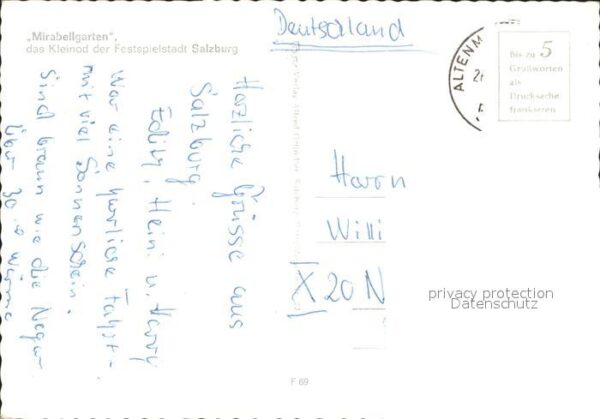 „Mirabellgarten",
das Kleinod der Festspielstadt Salzburg
Deutschland
ALTENM
Bis zu 5
Grußworten
als
Drucksache
frankieren
Herzliche Grüsse aus
Salzburg.
Edith, Heini u. Harry
War eine herrliche Fahrt
mit viel Sonnenschein.
Sind braun wie die Neger
Über 30° Wärme
Herrn
Willi
X 20 N
privacy protection
Datenschutz
F 69